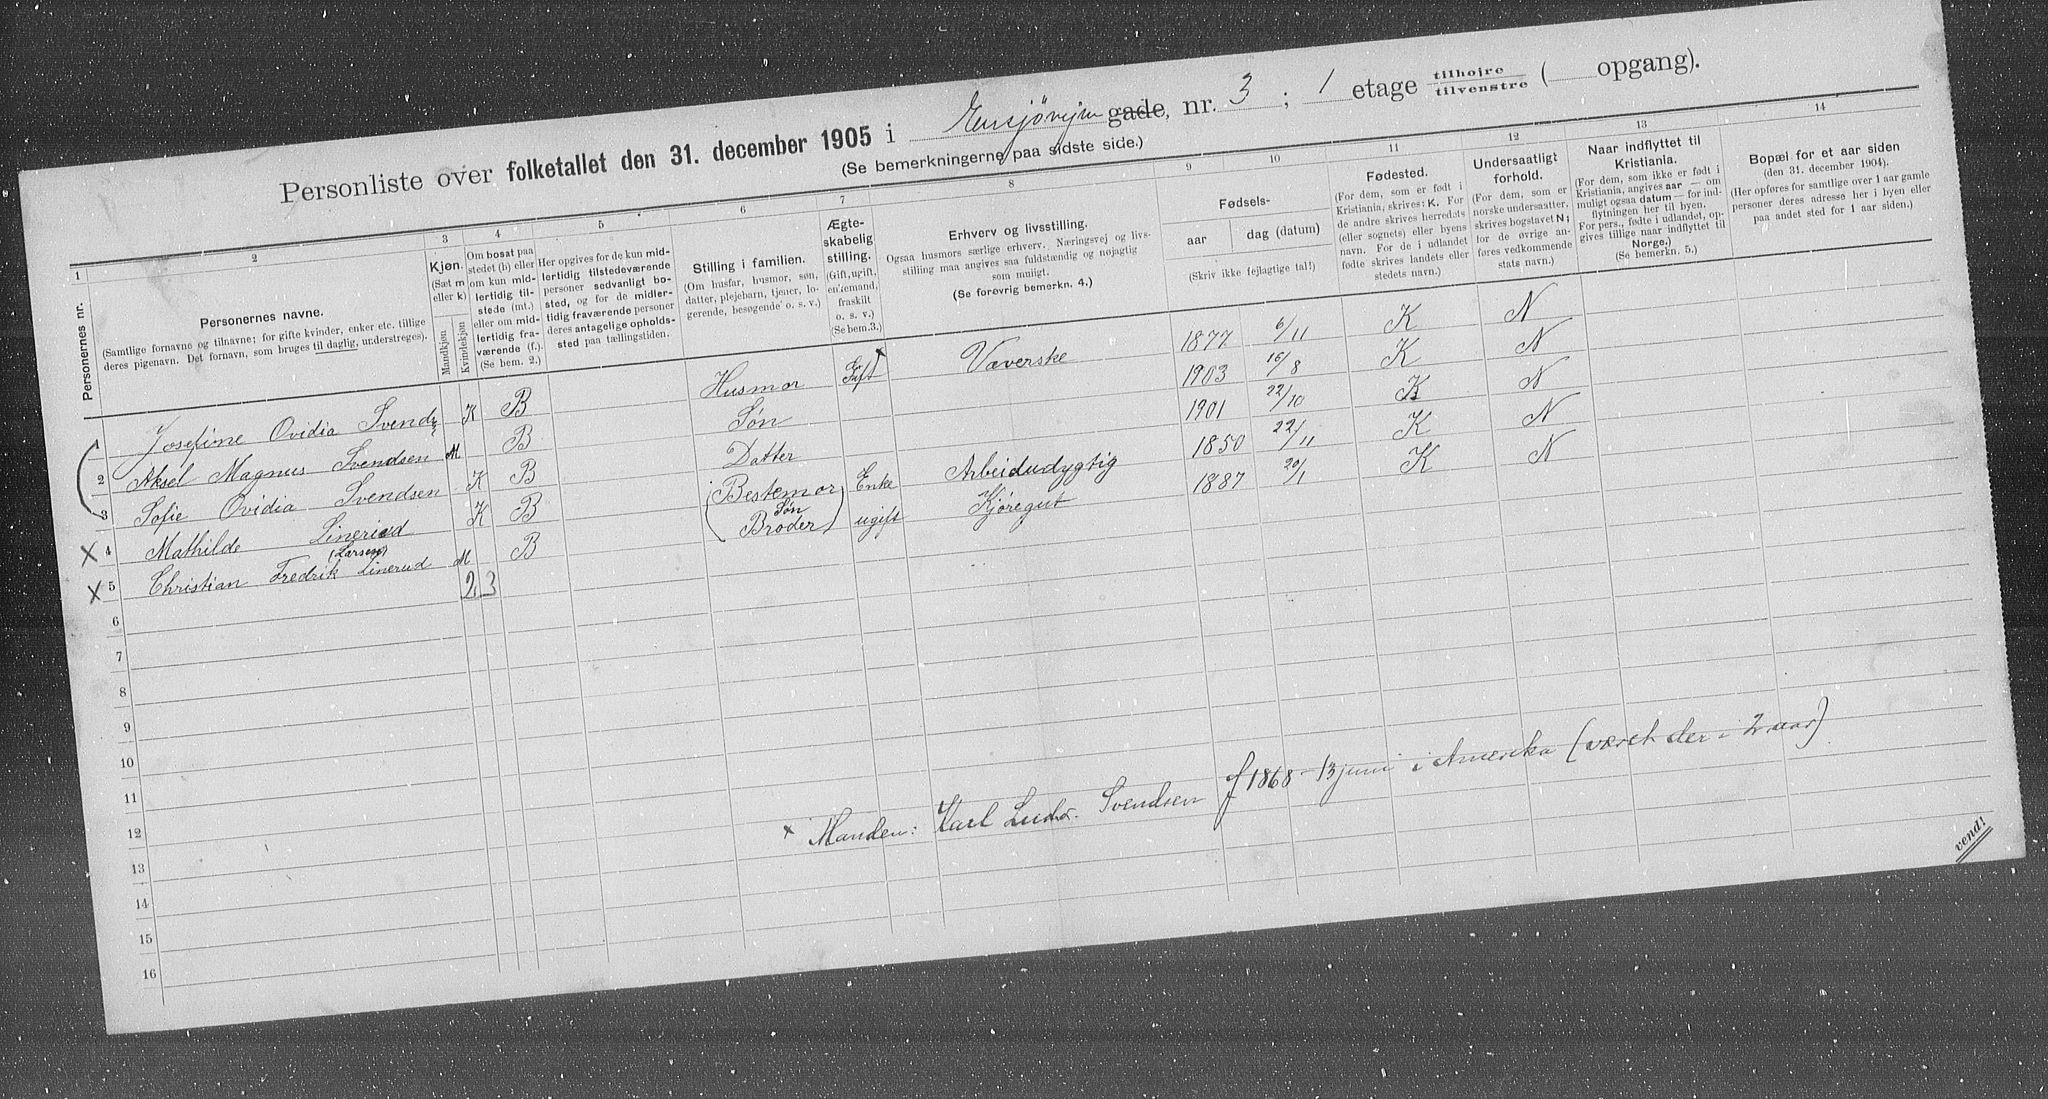 Personliste over folketallet den 31. december 1905 i Ensjøvejen gade, nr. 3 ; 1 etage tilhøjre tilvenstre ( opgang).
(Se bemerkningerne paa sidste side.)
1 2 3 4 5 6 7 8 9 10 11 12 13 14
Personernes nr.
Personernes navne.
(Samtlige fornavne og tilnavne; for gifte kvinder, enker etc. tillige
deres pigenavn. Det fornavn, som bruges til daglig, understreges).
Kjøn.
(Sæt m
eller k)
Mandkjøn
Kvindekjøn
Om bosat paa
stedet (b) eller
om kun mid-
lertidig til-
stede (mt.)
eller om mid-
lertidig fra-
værende (f.).
(Se bem. 2.)
Her opgives for de kun mid-
lertidig tilstedeværende
personer sedvanligt bo-
sted, og for de midler-
tidig fraværende personer
deres antagelige opholds-
sted paa tællingstiden.
Stilling i familien.
(Om husfar, husmor, søn,
datter, plejebarn, tjener, lo-
gerende, besøgende o. s. v.)
Ægte-
skabelig
stilling.
(Gift, ugift,
enkemand,
fraskilt
o. s. v.)
(Se bem.3.)
Erhverv og livsstilling.
Ogsaa husmors særlige erhverv. Næringsvej og livs-
stilling maa angives saa fuldstændig og nøjagtig
som muligt.
(Se forøvrig bemerkn. 4.)
Fødsels-
aar dag (datum)
(Skriv ikke fejlagtige tal!)
Fødested.
(For dem, som er født i
Kristiania, skrives: K. For
de andre skrives herredets
(eller sognets) eller byens
navn. For de i udlandet
fødte skrives landets eller
stedets navn.)
Undersaatligt
forhold.
(For dem, som er
norske undersaatter,
skrives bogstavet N;
for de øvrige an-
føres vedkommende
stats navn).
Naar indflyttet til
Kristiania.
(For dem, som ikke er født i
Kristiania, angives aar — om
muligt ogsaa datum — for ind-
flytningen her til byen.
For pers., fødte i udlandet, op-
gives tillige naar indflyttet til
Norge,)
(Se bemerkn. 5.)
Bopæl for et aar siden
(den 31. december 1904).
(Her opføres for samtlige over 1 aar gamle
personer deres adresse her i byen eller
paa andet sted for 1 aar siden.)
1 Josefine Ovidia Svendsen K B Husmor Gift x Væverske 1877 6/11 K N
2 Aksel Magnus Svendsen M B Søn 1903 16/8 K N
3 Sofie Ovidia Svendsen K B Datter 1901 22/10 K N
x 4 Mathilde Linerud K B (Bestemor) Enke Arbeidudygtig 1850 22/11 K N
x 5 Christian Fredrik (Larsen) Linerud M B (Søn Broder) ugift Kjøregut 1887 20/1 K N
6 2 3
7
8
9
10
11
12
13
14
15
16
x Manden: Karl Ludv. Svendsen f 1868 - 13 juni i Amerika (været der i 2 aar)
vend!